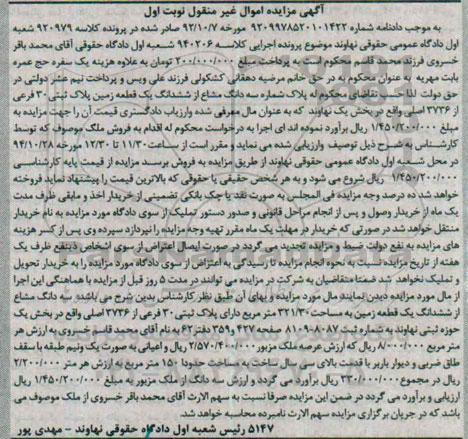 آگهی مزایده اموال غیر منقول نوبت اول
به موجب دادنامه شماره ۹۲۰۹۹۷۸۵۲۰۱۰۱۴۲۲ مورخه ۹۲/۱۰/۷ صادر شده در پرونده کلاسه ۹۲۰۹۷۹ شعبه
اول دادگاه عمومی حقوقی نهاوند موضوع پرونده اجرایی کلاسه ۹۴۰۲۰۶ شعبه اول دادگاه حقوقی آقای محمد باقر
خسروی فرزند محمد قاسم محکوم است به پرداخت مبلغ ۲۰۰/۰۰۰/۰۰۰ تومان به علاوه هزینه یک سفره حج عمره
بابت مهریه به عنوان محکوم به در حق خانم مرضیه دهقانی کشکولی فرزند علی ویس و پرداخت نیم عشر دولتی در
حق دولت لذا حسب تقاضای محکوم له پلاک شماره سه دانگ مشاع از ششدانگ یک قطعه زمین پلاک ثبتی ۳۰ فرعی
از ۳۷۳۶ اصلی واقع در بخش یک نهاوند که به عنوان مال معرفی شده وارزیاب دادگستری قیمت آن را جهت مزایده به
مبلغ ۱/۴۵۰/۲۰۰/۰۰۰ ریال برآورد نموده اند ای اجرا به درخواست محکوم له اقدام به فروش ملک موصوف که توسط
کارشناس به شرح ذیل توصیف وارزیابی شده می نماید و مقرر است از ساعت ۱۱/۳۰ تا ۱۲/۳۰ مورخه ۹۴/۱۰/۲۸
در محل شعبه اول دادگاه عمومی حقوقی نهاوند از طریق مزایده به فروش برسد مزایده از قیمت پایه کارشناسی
۱/۴۵۰/۲۰۰/۰۰۰ ریال شروع می شود و به هر شخص حقیقی یا حقوقی که بالاترین قیمت را پیشنهاد نماید فروخته
خواهد شد ده درصد وجه مزایده فی المجلس به صورت نقد یا چک بانکی تضمینی از خریدار اخذ و مابقی ظرف مدت
یک ماه از خریدار وصول و پس از انجام مراحل قانونی و صدور دستور تملیک از سوی دادگاه مورد مزایده به نام خریدار
منتقل خواهد شد در صورتی که خریدار در مهلت یک ماه مقرر تهیه وجه مزایده را نپردازد سپرده وی پس از کسر هزینه
های مزایده به نفع دولت ضبط و مزایده تجدید می گردد در صورت ایصال اعتراض از سوی اشخاص ذینفع ظرف یک
هفته از تاریخ مزایده نسبت به نحوه انجام مزایده تا رسیدگی به اعتراض از سوی دادگاه مورد مزایده را به خریدار تحویل
و تملیک نخواهد شد ضمنا متقاضیان به شرکت در مزایده می توانند در مدت ۵ روز قبل از مزایده با هماهنگی این اجرا
از مال مورد مزایده دیدن نمایند مال مورد مزایده و بهای آن طبق نظر کارشناس بدین شرح می باشد سه دانگ مشاع
از ششدانگ یک قطعه زمین به مساحت ۳۲۱/۳۰ متر مربع دارای پلاک ثبتی ۳۰ فرعی از ۳۷۳۶ اصلی واقع در بخش یک
حوزه ثبتی نهاوند به شماره ثبت ۸۱۰۹-۸۰۸۷ صفحه ۴۲۷ و۳۵۹ دفتر ۶۲ به نام آقای محمد قاسم خسروی به ارزش هر
متر مربع ۸/۰۰۰/۰۰۰ ریال که ارزش عرصه ملک مزبور ۲/۵۷۰/۴۰۰/۰۰۰ ریال و اعیانی به صورت یک ونیم طبقه با سقف
طاق ضربی و دیوار باربر با قدمت بالای سی سال ساخت به مساحت حدودا ۱۵۰ متر مربع به ارزش هر متر ۲/۲۰۰/۰۰۰
ریال در مجموع ۳۳۰/۰۰۰/۰۰۰ ریال برآورد می گردد و ارزش سه دانگ از ملک مزبور به مبلغ ۱/۴۵۰/۲۰۰/۰۰۰ ریال
ارزیابی و برآورد می گردد در ضمن این مزایده صرفا نسبت به سهم الارث آقای محمد باقر خسروی از ملک موصوف می
باشد که در جریان برگزاری مزایده سهم الارث نامبرده محاسبه خواهد شد.
۵۱۴۷ رئیس شعبه اول دادگاه حقوقی نهاوند - مهدی پور